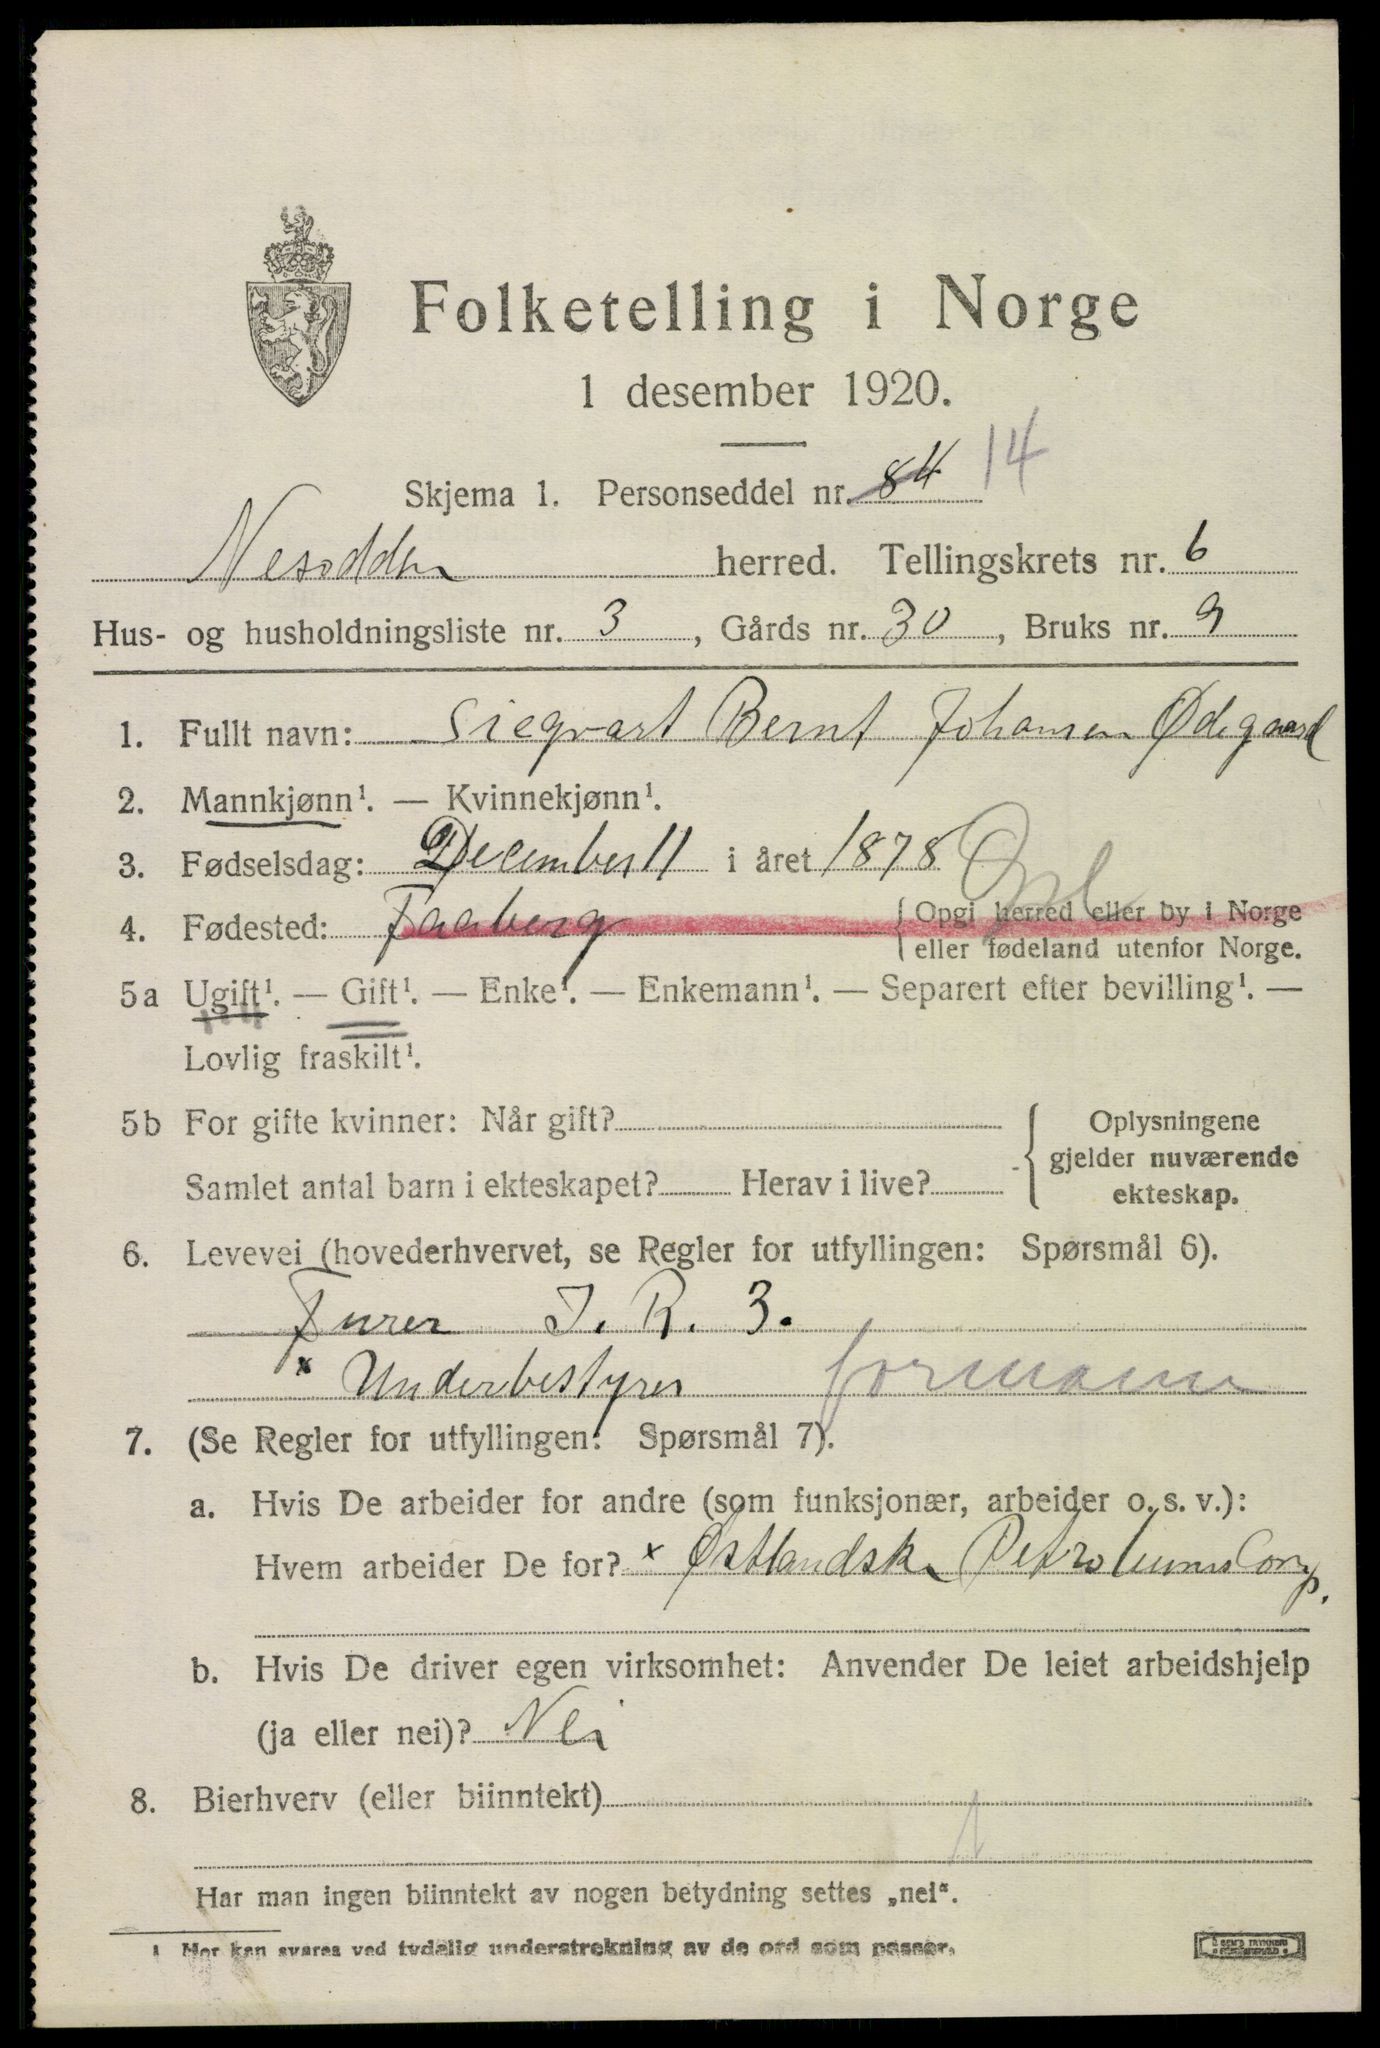 Folketelling i Norge
1 desember 1920.
Skjema 1. Personseddel nr. 84 14
Nesodden herred. Tellingskrets nr. 6
Hus- og husholdningsliste nr. 3, Gårds nr. 30, Bruks nr. 9
1. Fullt navn: Sieqvart Bernt Johansen Ødegaard
2. Mannkjønn¹. — Kvinnekjønn¹.
3. Fødselsdag: December 11 i året 1878
4. Fødested: Faaberg Opl {Opgi herred eller by i Norge
eller fødeland utenfor Norge.
5a Ugift¹. — Gift¹. — Enke¹. — Enkemann¹. — Separert efter bevilling¹. —
Lovlig fraskilt¹.
5b For gifte kvinner: Når gift?
Samlet antal barn i ekteskapet? Herav i live?
Oplysningene
gjelder nuværende
ekteskap.
6. Levevei (hovederhvervet, se Regler for utfyllingen: Spørsmål 6).
Furer I. R. 3.
x Underbestyrer formann
7. (Se Regler for utfyllingen: Spørsmål 7).
a. Hvis De arbeider for andre (som funksjonær, arbeider o. s. v.):
Hvem arbeider De for? x Østlandske Petroleums Comp.
b. Hvis De driver egen virksomhet: Anvender De leiet arbeidshjelp
(ja eller nei)? Nei
8. Bierhverv (eller biinntekt)
1
Har man ingen biinntekt av nogen betydning settes „nei“.
1 Her kan svares ved tydelig understrekning av de ord som passer.